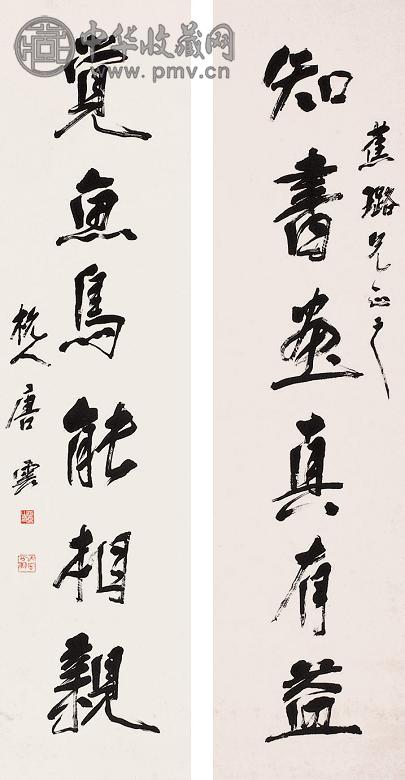 中华收藏网
www.pmv.cn
蕉璐兄正之
知書畫真有益
覺魚鳥能相親
杭人唐雲